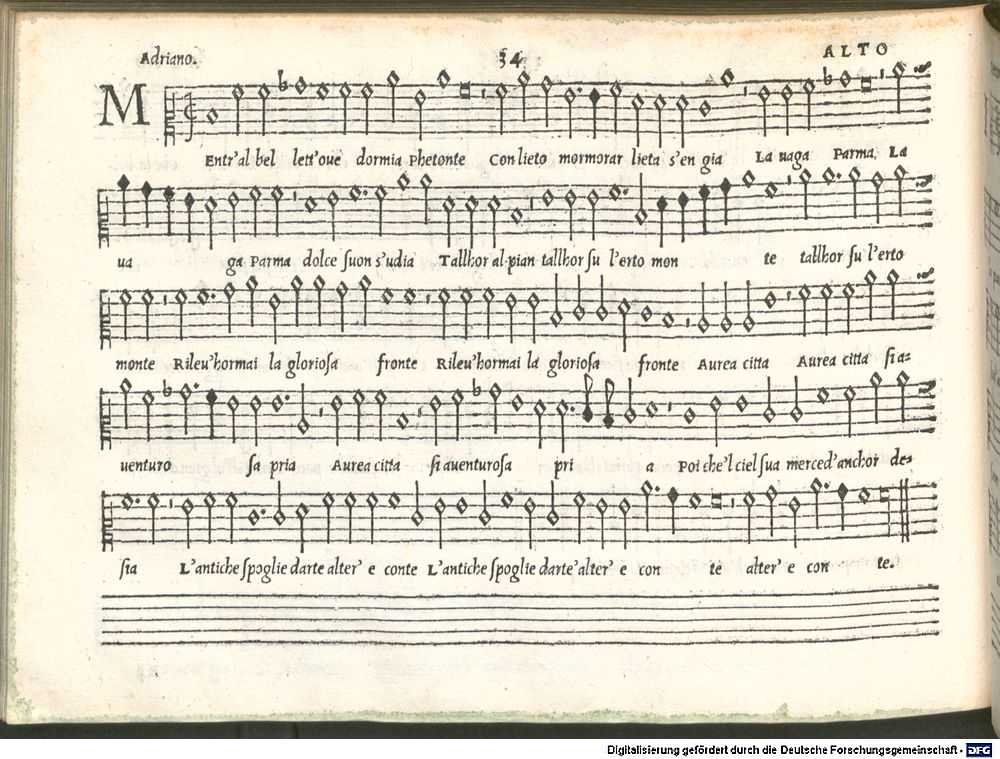 Adriano.
34
ALTO
M
Entr'al bel lett'oue dormia Phetonte Con lieto mormorar lieta s'en gia La uaga Parma, La
ua ga Parma dolce suon s'udia Tallhor al pian tallhor su l'erto mon te tallhor su l'erto
monte Rileu'hormai la gloriosa fronte Rileu'hormai la gloriosa fronte Aurea citta Aurea citta si a=
uenturo sa pria Aurea citta si auenturosa pri a Poi che'l ciel sua merced'anchor de=
sia L'antiche spoglie darte alter' e conte L'antiche spoglie darte'alter' e con te alter' e con te.
Digitalisierung gefördert durch die Deutsche Forschungsgemeinschaft - DFG